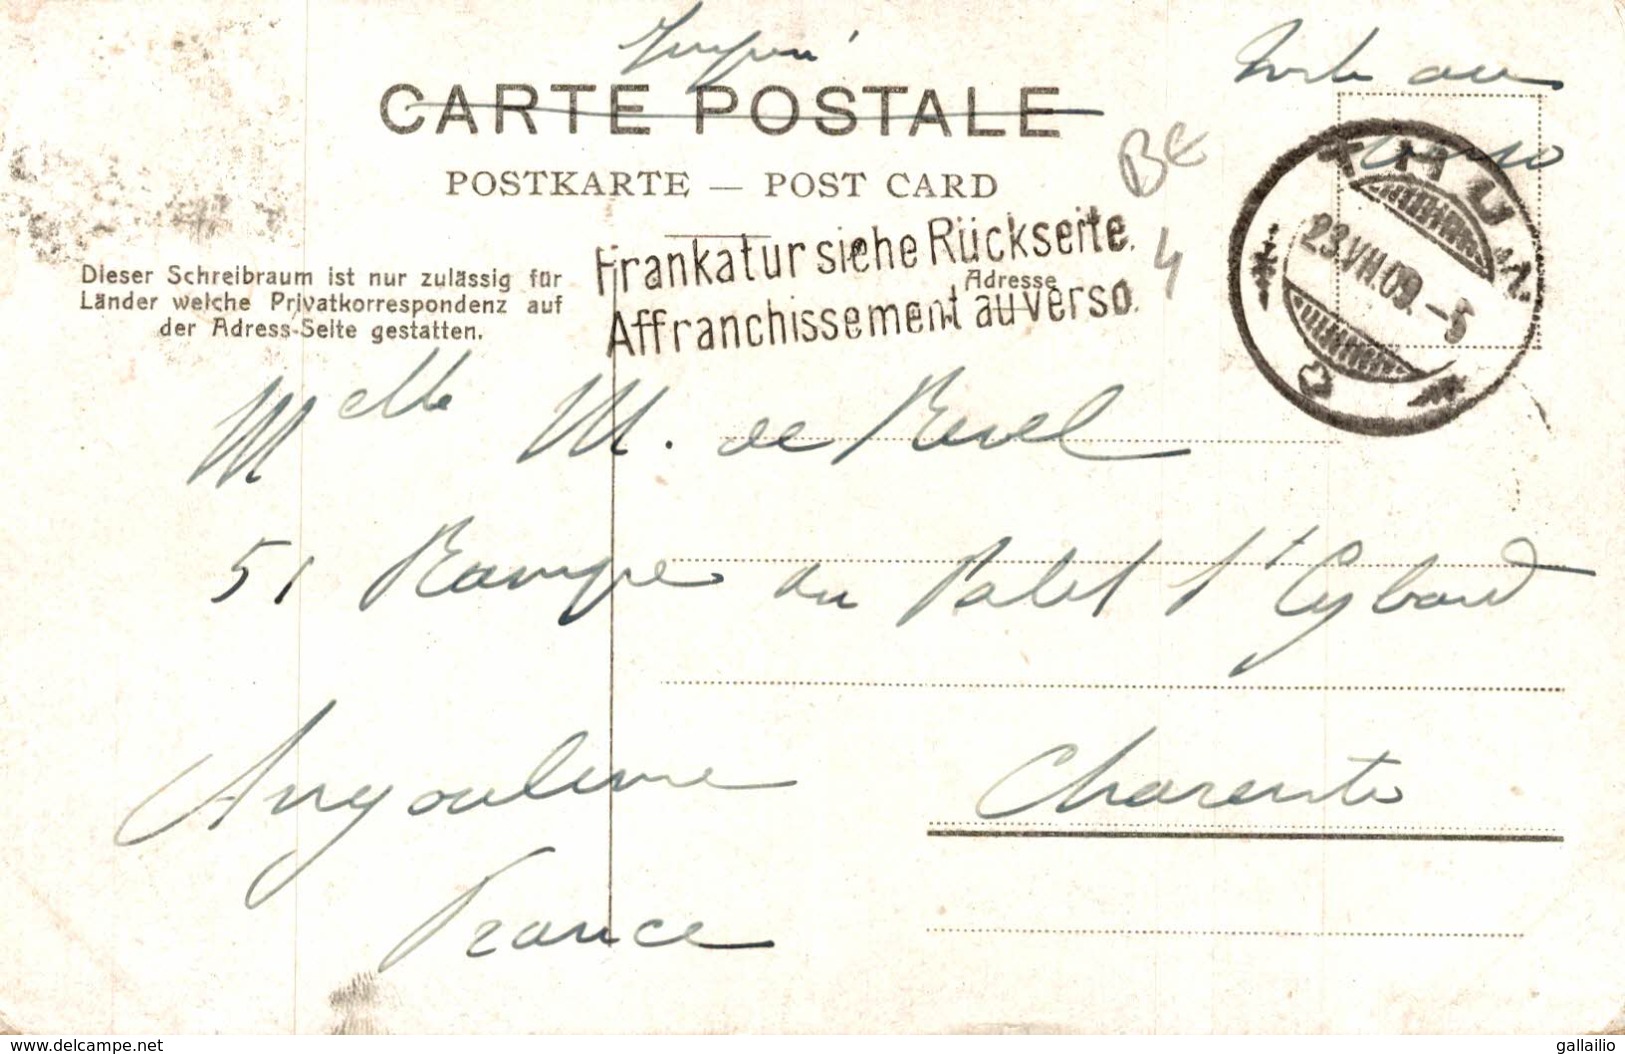 Imprimé
Timbre au
verso
CARTE POSTALE
POSTKARTE — POST CARD
BE
4
THUN
23.VII.09.-5
Frankatur siehe Rückseite.
Affranchissement au verso.
Adresse
Dieser Schreibraum ist nur zulässig für
Länder welche Privatkorrespondenz auf
der Adress-Seite gestatten.
Melle M. de Revel
51 Rampe du Palet St Cybard
Angouleme Charente
France
delcampe.net
gallailio